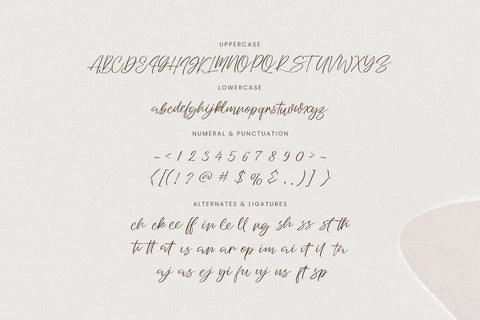 UPPERCASE
ABCDEFGHIJKLMNOPQRSTUVWXYZ
LOWERCASE
abcdefghijklmnopqrstuvwxyz
NUMERAL & PUNCTUATION
~ < 1 2 3 4 5 6 7 8 9 0 > ~
{ [ ( ! ? @ # $ % & . , ) ] }
ALTERNATES & LIGATURES
ch ck ee ff in le ll ng sh ss st th
tt at is an ar op im ai it il
aj as ej yi fu uj us ft sp